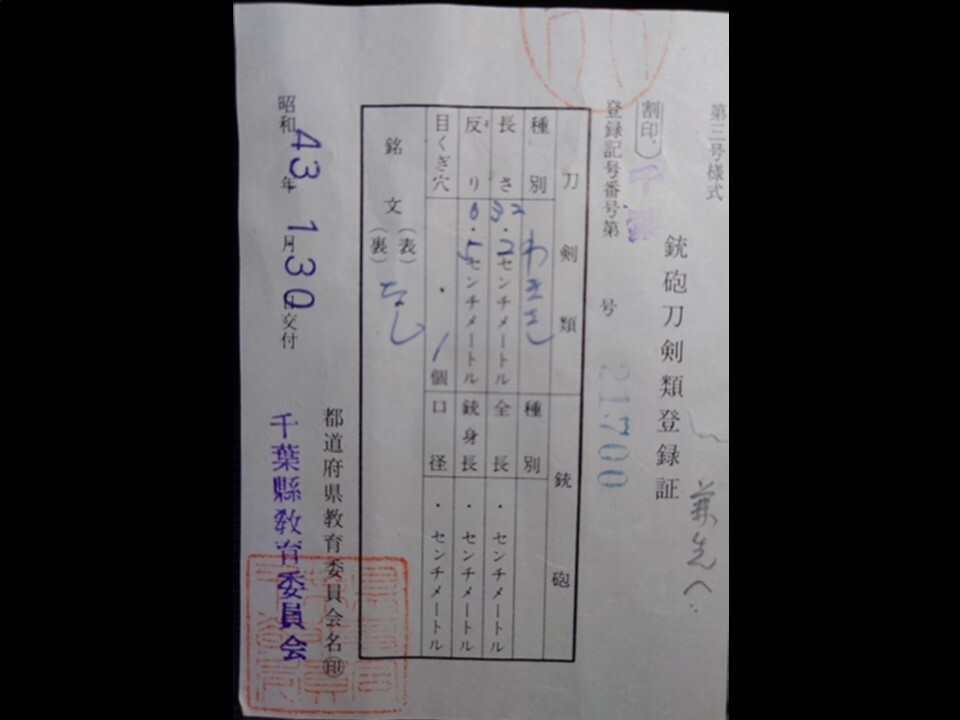 第三号様式
兼先へ
銃砲刀剣類登録証
割印
千葉
登録記号番号第 号
21700
刀剣類
種別 わきざし
長さ 32.2センチメートル
反り 0.5センチメートル
目くぎ穴 1個
銘文 (表) (裏) なし
銃砲
種別
全長 ・ センチメートル
銃身長 ・ センチメートル
口径 ・ センチメートル
昭和43年1月30日交付
都道府県教育委員会名㊞
千葉縣教育委員会